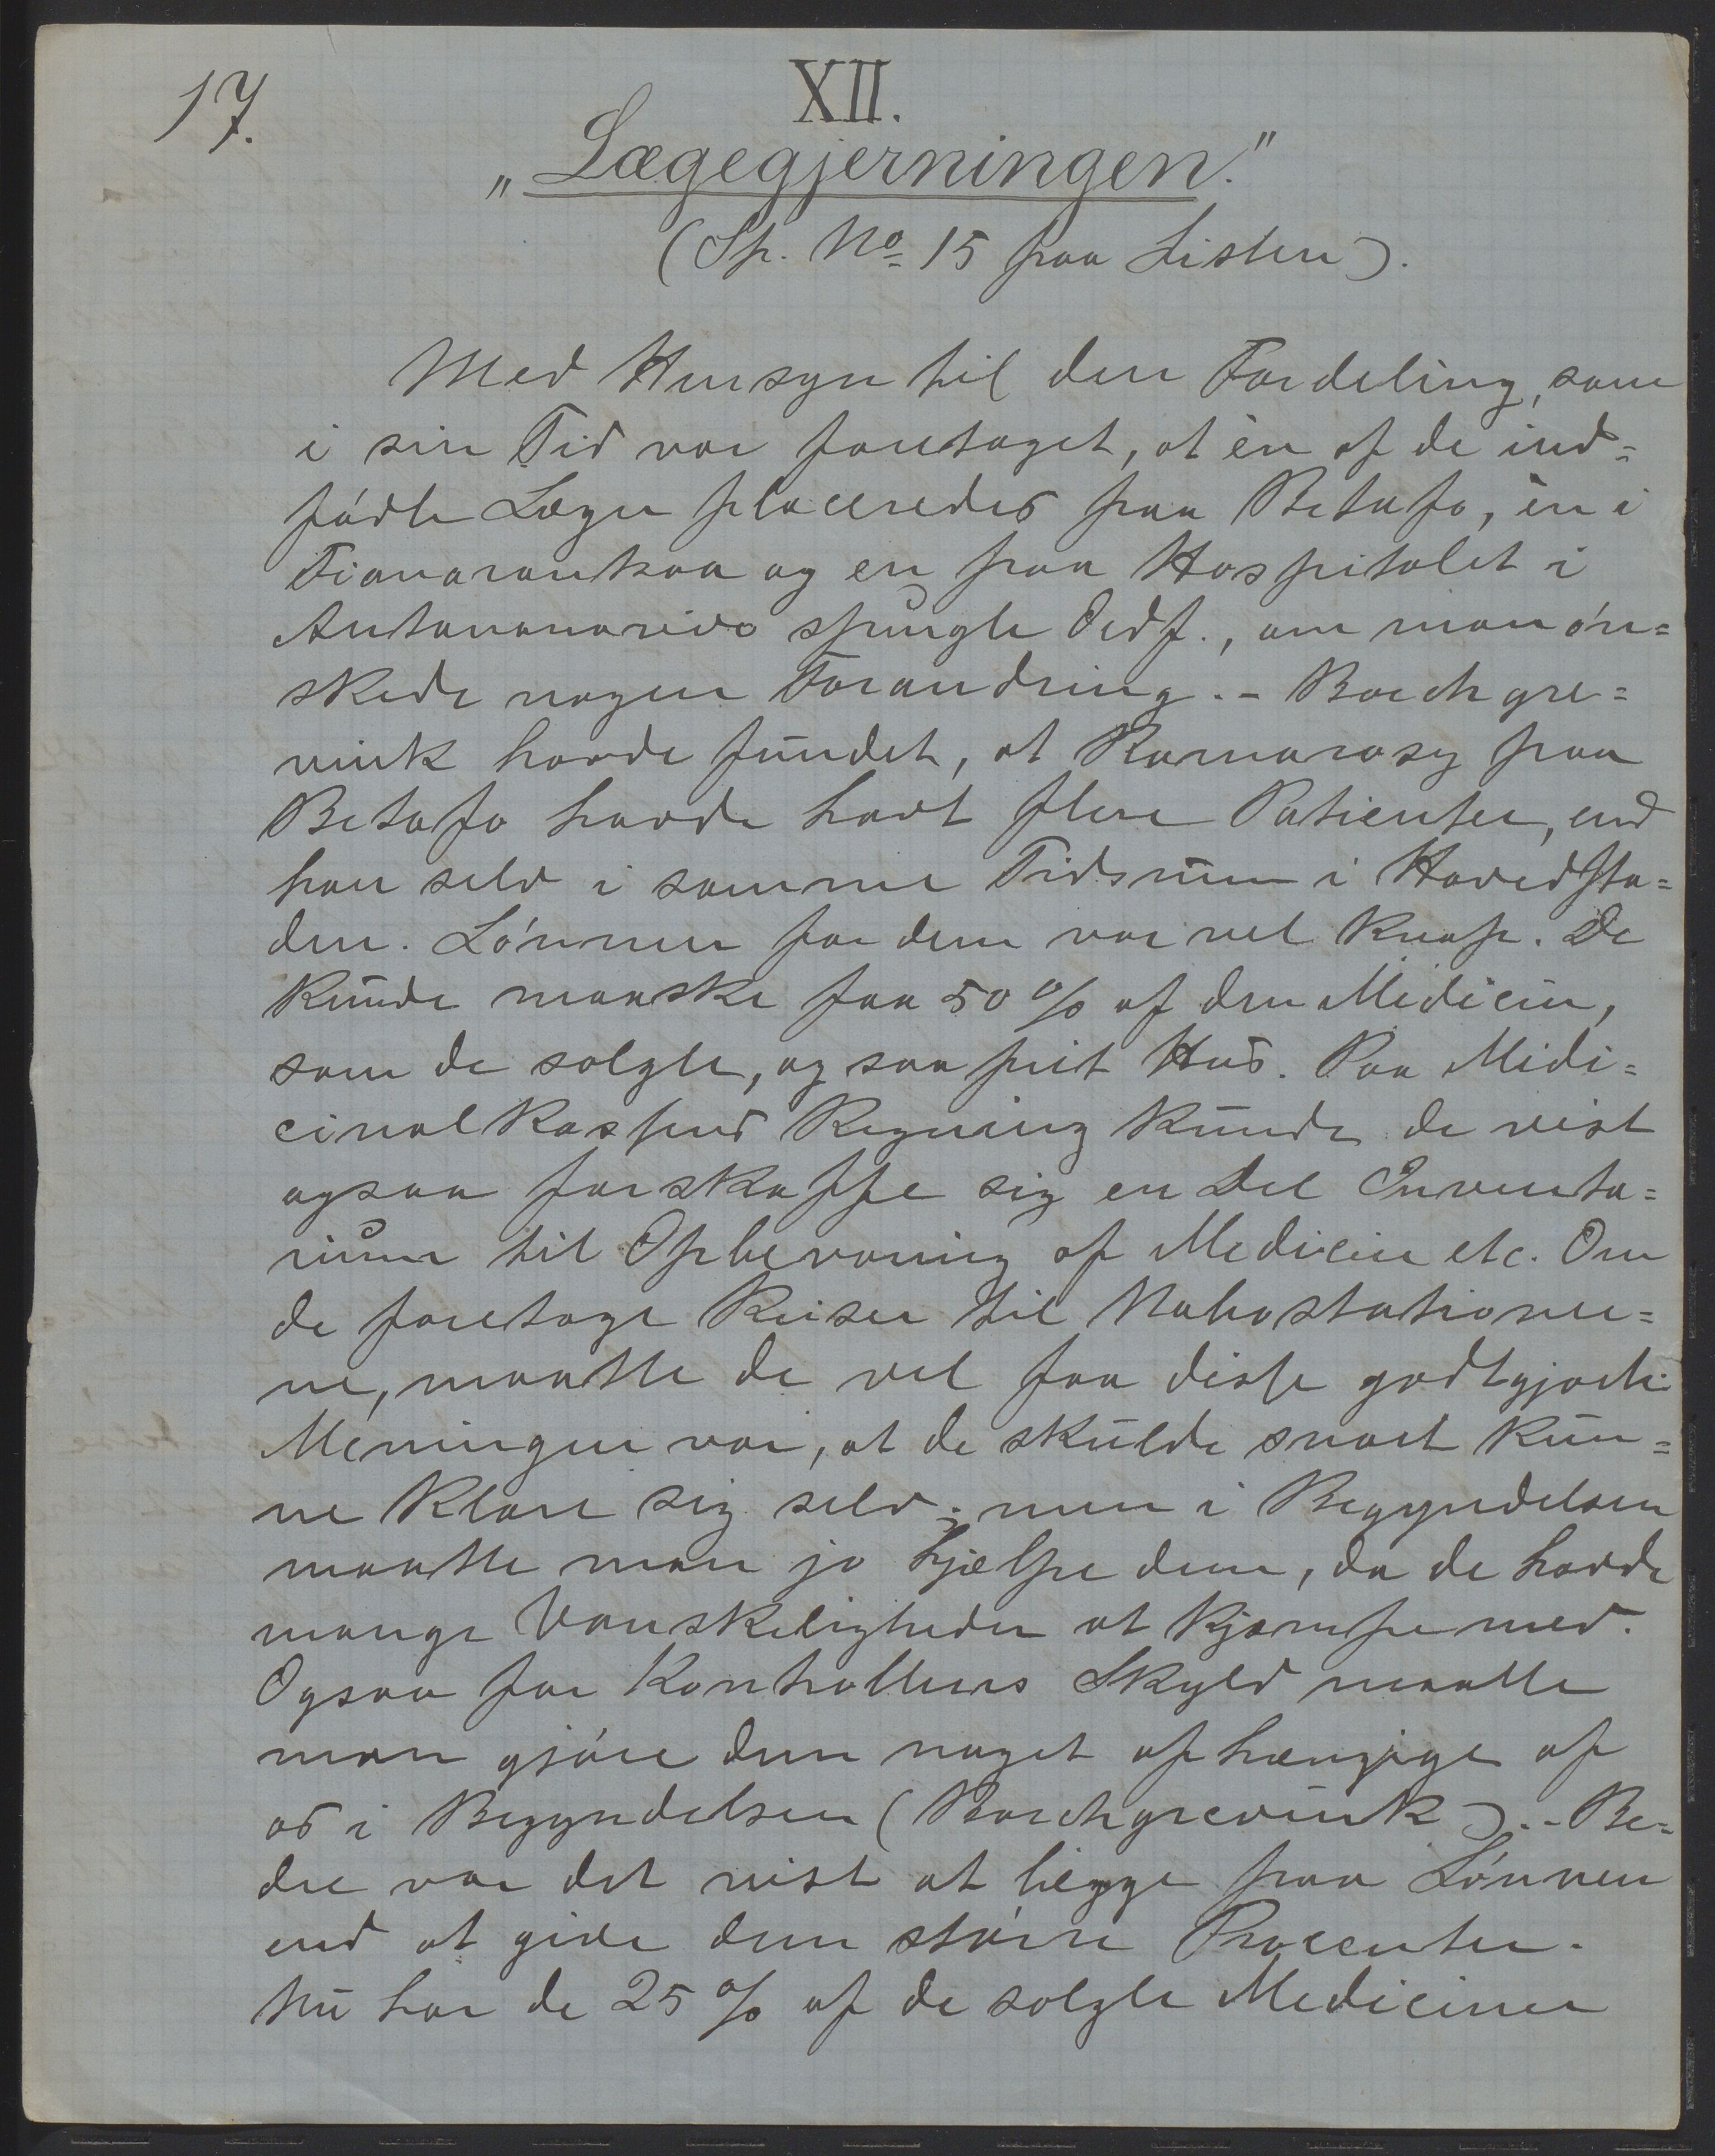 17.
XII.
„Lægegjerningen."
(Sp. No 15 paa Listen).
Med Hensyn til den Fordeling, som
i sin Tid var foretaget, at èn af de ind=
fódte Læger placeredes paa Betafo, èn i
Fianarantsoa og en paa Hospitalet i
Antananarivo spurgte Ordf., om man ón=
skede nogen Forandring. - Borchgre=
vink havde fundet, at Ramarosy paa
Betafo havde havt flere Patienter, end
han selv i samme Tidsrum i Hovedsta=
den. Lónnen for dem var vel knap. De
kunde maaske faa 50 % af den Medicin,
som de solgte, og saa frit Hus. Paa Medi=
cinalkassens Regning kunde de vist
ogsaa forskaffe sig en Del Inventa=
rium til Opbevaring af Medicin etc. Om
de foretage Reiser til Nabostationer=
ne, maatte de vel faa disse godtgjorte.
Meningen var, at de skulde snart kun=
ne klare sig selv; men i Begyndelsen
maatte man jo hjælpe dem, da de havde
mange Vanskeligheder at kjæmpe med.
Ogsaa for Kontrollens Skyld maatte
man gjóre dem noget afhængige af
os i Begyndelsen (Borchgrevink). - Be=
dre var det vist at lægge paa Lónnen
end at give dem stórre Procenter.
Nu har de 25 % af de solgte Mediciner